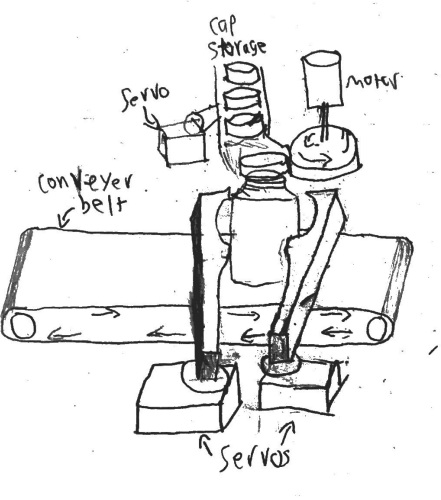 cap
storage
motor
servo
conveyer
belt
servos